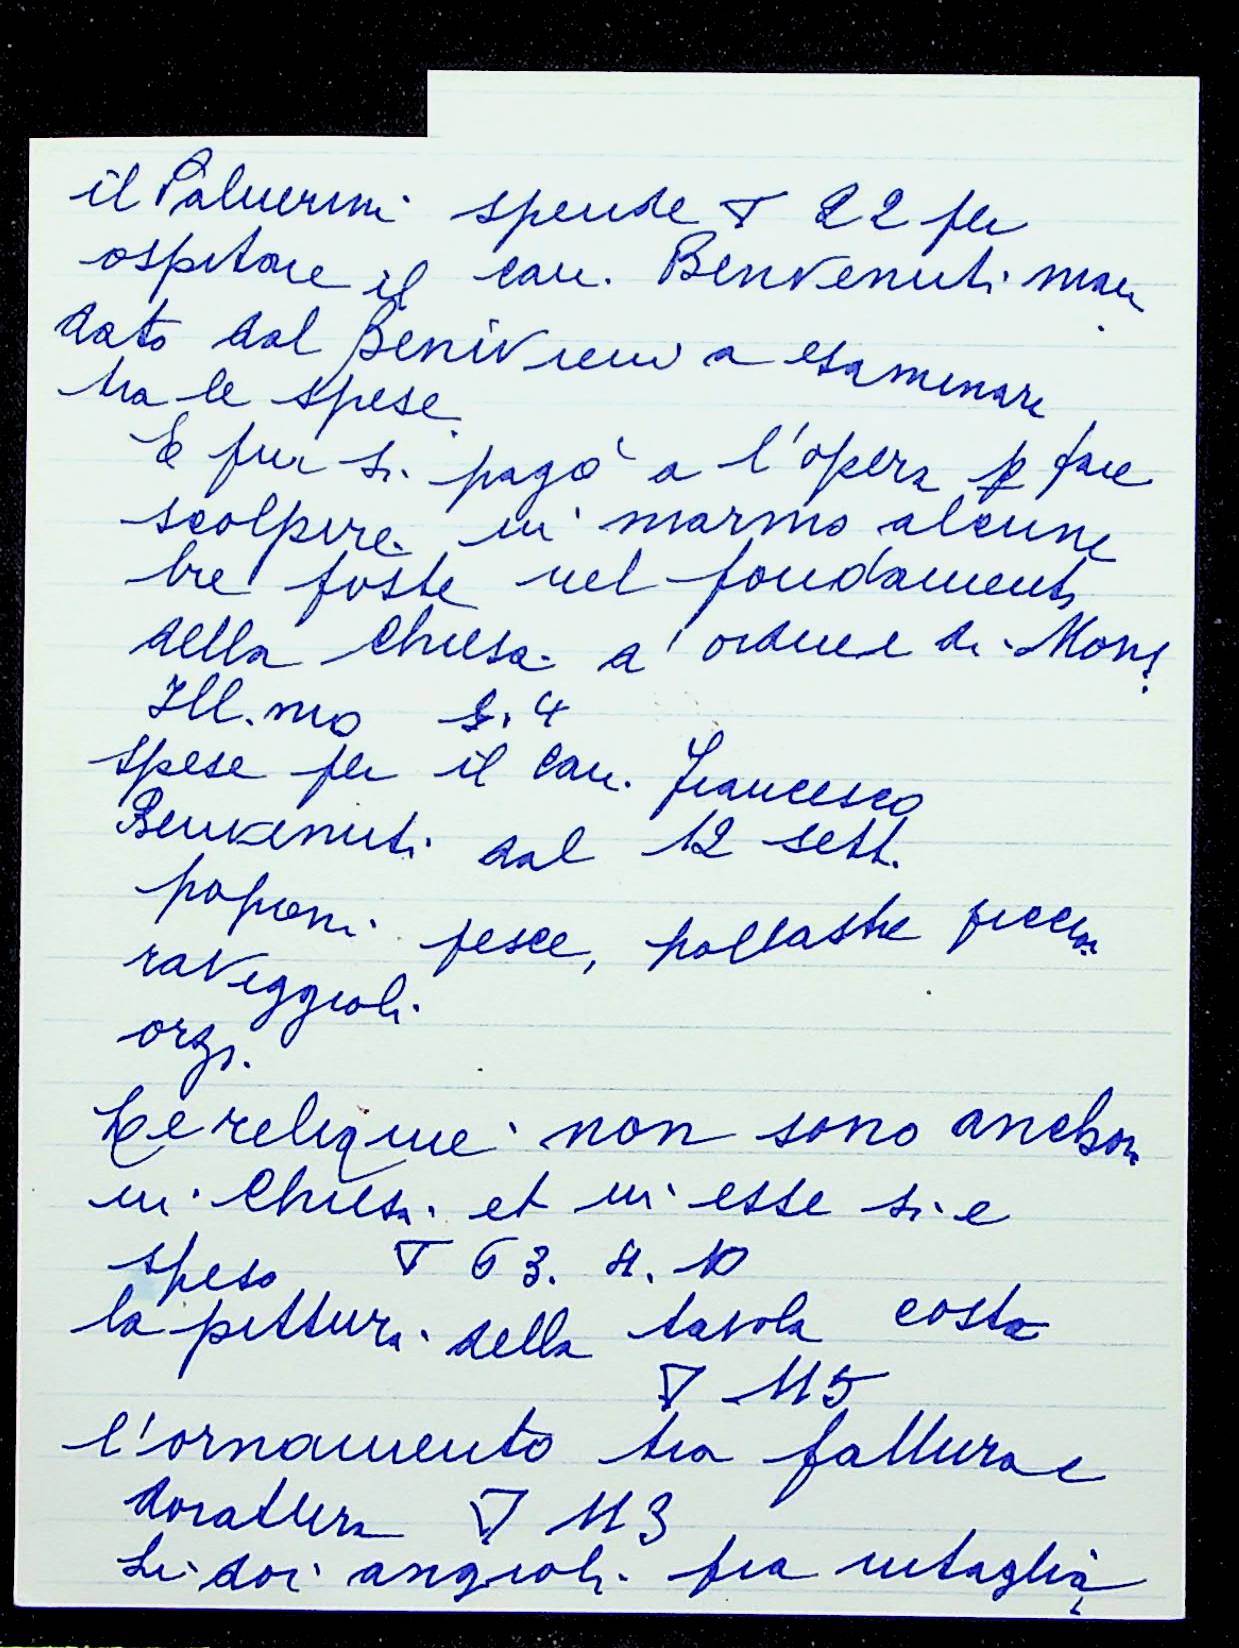 il Palmerini spende ▽ 22 per
ospitare il can. Benvenuti man
dato dal Benivieni a esaminare
tra le spese
E piu si pagò a l'opera p fare
scolpire in marmo alcune
tre poste nel fondamento
della Chiesa a ordine di Mons.
Ill.mo s. 4
spese per il Can. Francesco
Benvenuti dal 12 sett.
poponi pesce, pollastre
raveggioli
orzi.
Le reliquie non sono anchor
in Chiesa et in esse si e
speso ▽ 63. 4. 10
la pittura della tavola costa
▽ 115
l'ornamento tra fattura e
doratura ▽ 113
Li doi angioli fra